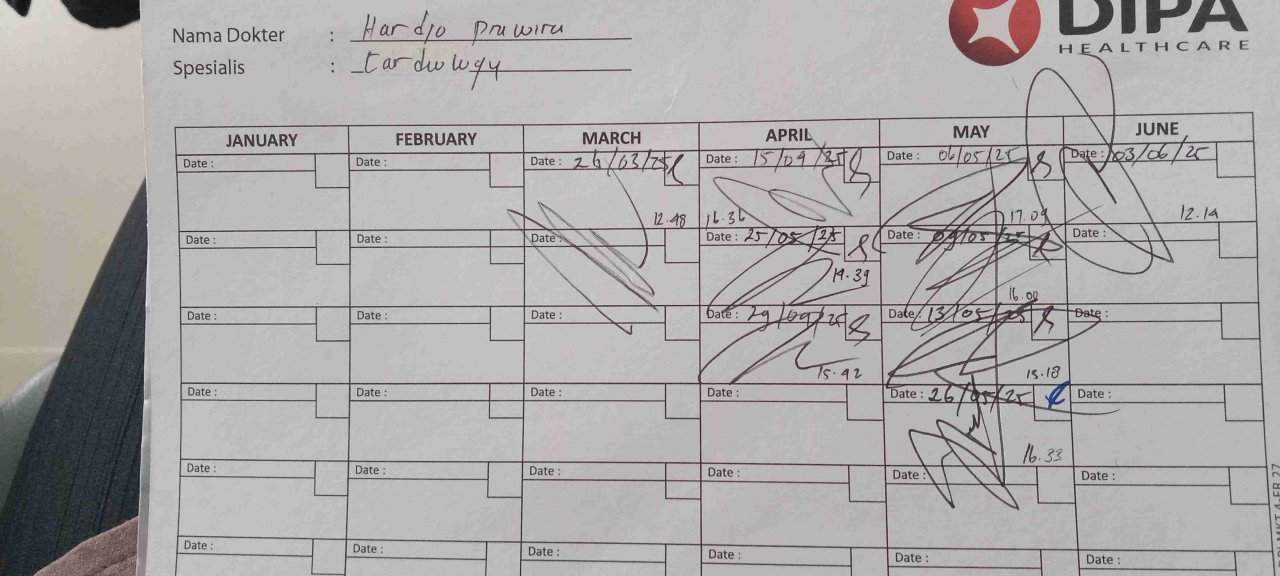 DIPA
HEALTHCARE
Nama Dokter : Hardjo Prawira
Spesialis : Cardiology
JANUARY FEBRUARY MARCH APRIL MAY JUNE
Date : Date : Date : 26/03/25 Date : 15/04/25 Date : 06/05/25 Date : 03/06/25
12.48 16.36 17.09 12.14
Date : Date : Date : Date : 25/05/25 Date : 09/05/25 Date :
19.39 16.00
Date : Date : Date : Date : 29/04/25 Date : 13/05/25 Date :
15.42 15.18
Date : Date : Date : Date : Date : 26/05/25 Date :
16.33
Date : Date : Date : Date : Date : Date :
Date : Date : Date : Date : Date : Date :